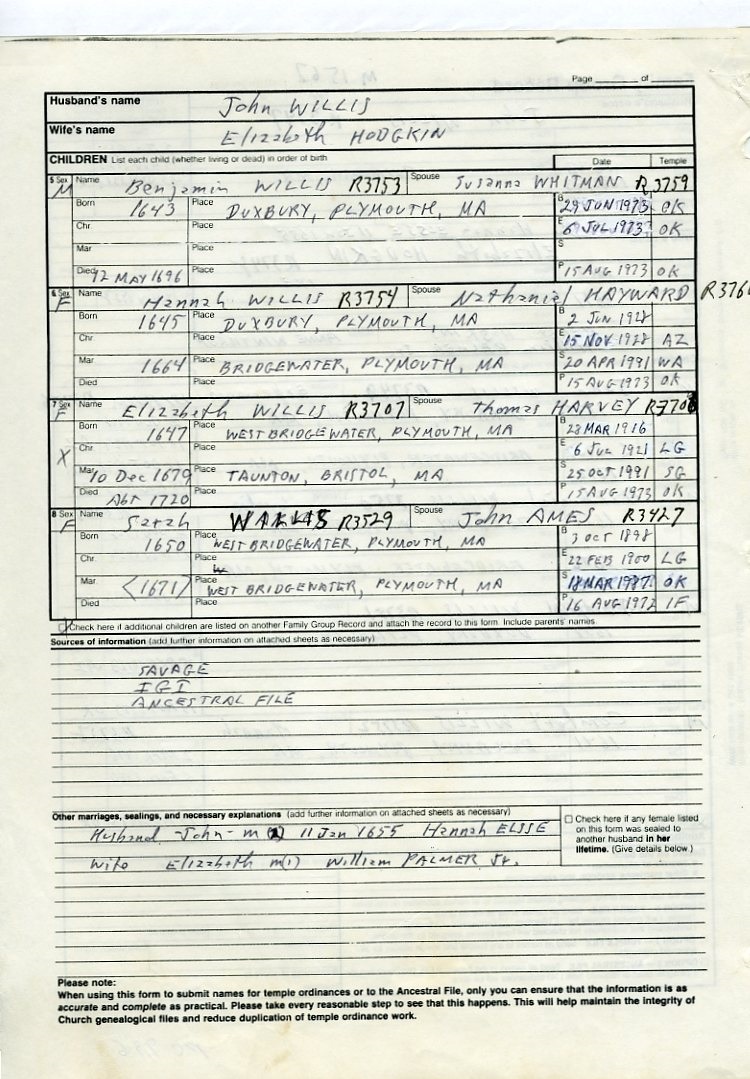 Page ____ of ____
Husband's name John WILLIS
Wife's name Elizabeth HODGKIN
CHILDREN List each child (whether living or dead) in order of birth Date Temple
5 Sex M Name Benjamin WILLIS R3753 Spouse Susanna WHITMAN R3759
Born 1643 Place DUXBURY, PLYMOUTH, MA B 29 JUN 1973 OK
Chr. Place E 6 JUL 1973 OK
Mar. Place S
Died 12 MAY 1696 Place P 15 AUG 1973 OK
6 Sex F Name Hannah WILLIS R3754 Spouse Nathaniel HAYWARD
Born 1645 Place DUXBURY, PLYMOUTH, MA B 2 JUN 1928
Chr. Place E 15 NOV 1928 AZ
Mar. 1664 Place BRIDGEWATER, PLYMOUTH, MA S 20 APR 1991 WA
Died Place P 15 AUG 1973 OK
7 Sex F Name Elizabeth WILLIS R3707 Spouse Thomas HARVEY
Born 1647 Place WEST BRIDGEWATER, PLYMOUTH, MA B 28 MAR 1916
X Chr. Place E 6 JUL 1921 LG
Mar. 10 Dec 1679 Place TAUNTON, BRISTOL, MA S 25 OCT 1991 SG
Died Abt 1720 Place P 15 AUG 1973 OK
8 Sex F Name Sarah WILLIS R3529 Spouse John AMES R3427
Born 1650 Place WEST BRIDGEWATER, PLYMOUTH, MA B 3 OCT 1898
Chr. Place E 22 FEB 1900 LG
Mar. <1671> Place WEST BRIDGEWATER, PLYMOUTH, MA S 18 MAR 1987 OK
Died Place P 16 AUG 1972 IF
Check here if additional children are listed on another Family Group Record and attach the record to this form. Include parents' names.
Sources of information (add further information on attached sheets as necessary)
SAVAGE
IGI
ANCESTRAL FILE
Other marriages, sealings, and necessary explanations (add further information on attached sheets as necessary)
Husband - John - m 11 Jan 1655 Hannah ELSSE
Wife Elizabeth m(1) William PALMER Jr.
Check here if any female listed
on this form was sealed to
another husband in her
lifetime. (Give details below.)
Please note:
When using this form to submit names for temple ordinances or to the Ancestral File, only you can ensure that the information is as
accurate and complete as practical. Please take every reasonable step to see that this happens. This will help maintain the integrity of
Church genealogical files and reduce duplication of temple ordinance work.